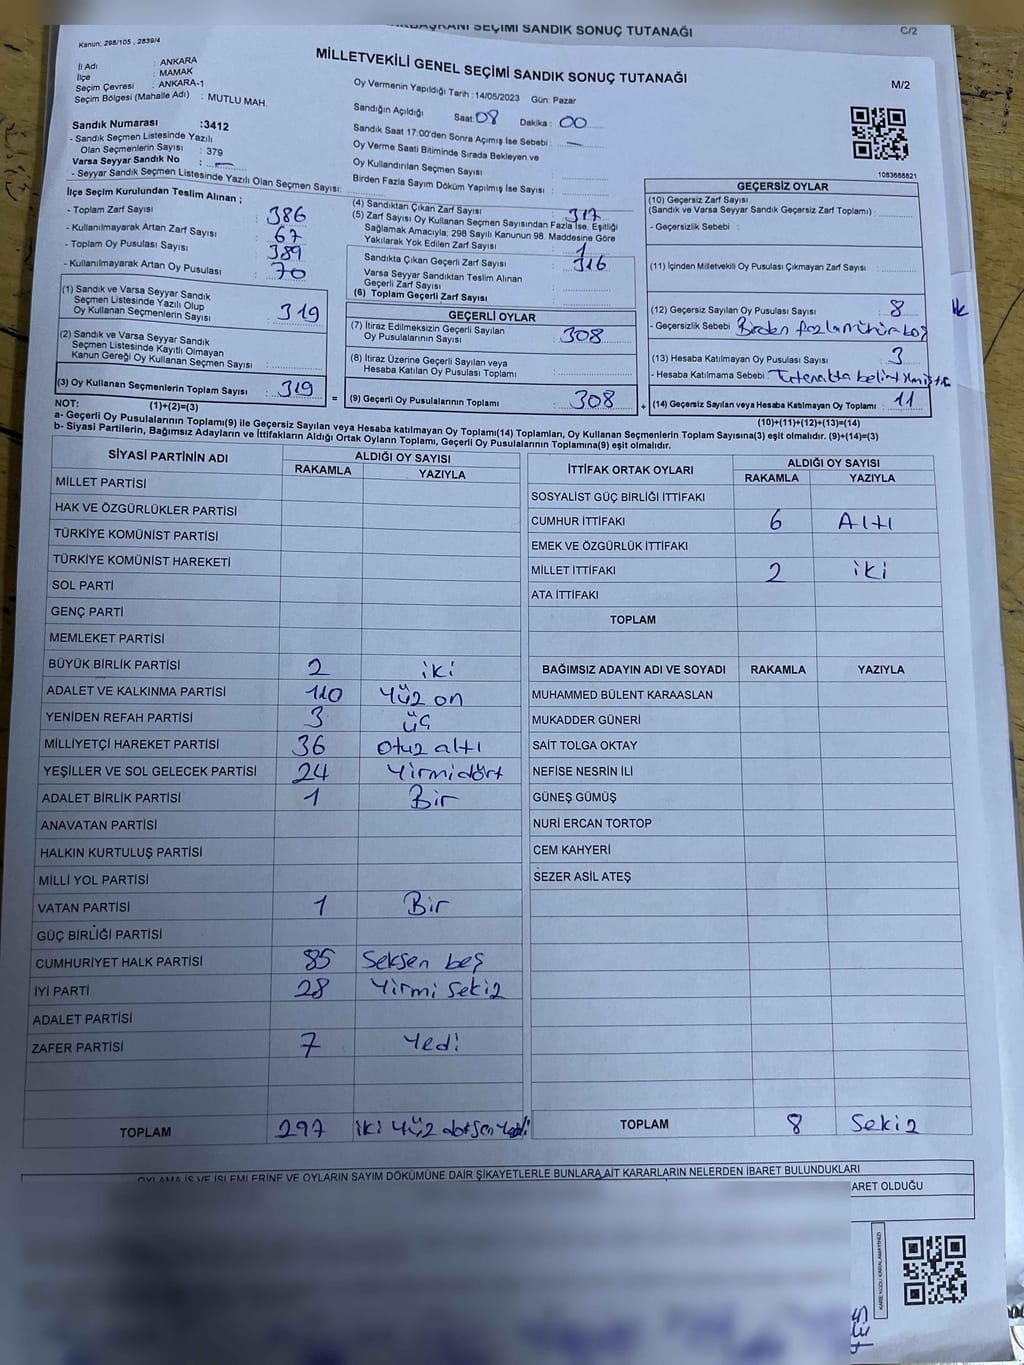 BAŞKANI SEÇİMİ SANDIK SONUÇ TUTANAĞI
C/2
Kanun: 298/105 , 2839/4
MİLLETVEKİLİ GENEL SEÇİMİ SANDIK SONUÇ TUTANAĞI
M/2
İl Adı : ANKARA
İlçe : MAMAK
Seçim Çevresi : ANKARA-1
Seçim Bölgesi (Mahalle Adı) : MUTLU MAH.
Sandık Numarası :3412
- Sandık Seçmen Listesinde Yazılı
Olan Seçmenlerin Sayısı : 379
Varsa Seyyar Sandık No : -
- Seyyar Sandık Seçmen Listesinde Yazılı Olan Seçmen Sayısı:
Oy Vermenin Yapıldığı Tarih : 14/05/2023 Gün: Pazar
Sandığın Açıldığı Saat: 08 Dakika : 00
Sandık Saat 17:00'den Sonra Açılmış İse Sebebi : -
Oy Verme Saati Bitiminde Sırada Bekleyen ve
Oy Kullandırılan Seçmen Sayısı :
Birden Fazla Sayım Döküm Yapılmış İse Sayısı :
1083688821
İlçe Seçim Kurulundan Teslim Alınan ;
- Toplam Zarf Sayısı : 386
- Kullanılmayarak Artan Zarf Sayısı : 67
- Toplam Oy Pusulası Sayısı : 389
- Kullanılmayarak Artan Oy Pusulası : 70
(1) Sandık ve Varsa Seyyar Sandık
Seçmen Listesinde Yazılı Olup
Oy Kullanan Seçmenlerin Sayısı : 319
(2) Sandık ve Varsa Seyyar Sandık
Seçmen Listesinde Kayıtlı Olmayan
Kanun Gereği Oy Kullanan Seçmen Sayısı :
(3) Oy Kullanan Seçmenlerin Toplam Sayısı : 319
=
(4) Sandıktan Çıkan Zarf Sayısı : 317
(5) Zarf Sayısı Oy Kullanan Seçmen Sayısından Fazla İse, Eşitliği
Sağlamak Amacıyla; 298 Sayılı Kanunun 98. Maddesine Göre
Yakılarak Yok Edilen Zarf Sayısı : 1
Sandıkta Çıkan Geçerli Zarf Sayısı : 316
Varsa Seyyar Sandıktan Teslim Alınan
Geçerli Zarf Sayısı :
(6) Toplam Geçerli Zarf Sayısı :
GEÇERLİ OYLAR
(7) İtiraz Edilmeksizin Geçerli Sayılan
Oy Pusulalarının Sayısı : 308
(8) İtiraz Üzerine Geçerli Sayılan veya
Hesaba Katılan Oy Pusulası Toplamı :
(9) Geçerli Oy Pusulalarının Toplamı : 308
+
GEÇERSİZ OYLAR
(10) Geçersiz Zarf Sayısı
(Sandık ve Varsa Seyyar Sandık Geçersiz Zarf Toplamı) :
- Geçersizlik Sebebi :
(11) İçinden Milletvekili Oy Pusulası Çıkmayan Zarf Sayısı :
(12) Geçersiz Sayılan Oy Pusulası Sayısı : 8
- Geçersizlik Sebebi : Birden fazla mühür boş
(13) Hesaba Katılmayan Oy Pusulası Sayısı : 3
- Hesaba Katılmama Sebebi : Tutanakta belirtilmiştir
(14) Geçersiz Sayılan veya Hesaba Katılmayan Oy Toplamı : 11
NOT: (1)+(2)=(3)
(10)+(11)+(12)+(13)=(14)
a- Geçerli Oy Pusulalarının Toplamı(9) ile Geçersiz Sayılan veya Hesaba katılmayan Oy Toplamı(14) Toplamları, Oy Kullanan Seçmenlerin Toplam Sayısına(3) eşit olmalıdır. (9)+(14)=(3)
b- Siyasi Partilerin, Bağımsız Adayların ve İttifakların Aldığı Ortak Oyların Toplamı, Geçerli Oy Pusulalarının Toplamına(9) eşit olmalıdır.
SİYASİ PARTİNİN ADI ALDIĞI OY SAYISI
RAKAMLA YAZIYLA
MİLLET PARTİSİ
HAK VE ÖZGÜRLÜKLER PARTİSİ
TÜRKİYE KOMÜNİST PARTİSİ
TÜRKİYE KOMÜNİST HAREKETİ
SOL PARTİ
GENÇ PARTİ
MEMLEKET PARTİSİ
BÜYÜK BİRLİK PARTİSİ 2 iki
ADALET VE KALKINMA PARTİSİ 110 Yüz on
YENİDEN REFAH PARTİSİ 3 üç
MİLLİYETÇİ HAREKET PARTİSİ 36 otuz altı
YEŞİLLER VE SOL GELECEK PARTİSİ 24 Yirmidört
ADALET BİRLİK PARTİSİ 1 Bir
ANAVATAN PARTİSİ
HALKIN KURTULUŞ PARTİSİ
MİLLİ YOL PARTİSİ
VATAN PARTİSİ 1 Bir
GÜÇ BİRLİĞİ PARTİSİ
CUMHURİYET HALK PARTİSİ 85 Seksen beş
İYİ PARTİ 28 Yirmi sekiz
ADALET PARTİSİ
ZAFER PARTİSİ 7 Yedi
TOPLAM 297 iki yüz
İTTİFAK ORTAK OYLARI ALDIĞI OY SAYISI
RAKAMLA YAZIYLA
SOSYALİST GÜÇ BİRLİĞİ İTTİFAKI
CUMHUR İTTİFAKI 6 Altı
EMEK VE ÖZGÜRLÜK İTTİFAKI
MİLLET İTTİFAKI 2 iki
ATA İTTİFAKI
TOPLAM
BAĞIMSIZ ADAYIN ADI VE SOYADI RAKAMLA YAZIYLA
MUHAMMED BÜLENT KARAASLAN
MUKADDER GÜNERİ
SAİT TOLGA OKTAY
NEFİSE NESRİN İLİ
GÜNEŞ GÜMÜŞ
NURİ ERCAN TORTOP
CEM KAHYERİ
SEZER ASİL ATEŞ
TOPLAM 8 Sekiz
OYLAMA İŞ VE İŞLEMLERİNE VE OYLARIN SAYIM DÖKÜMÜNE DAİR ŞİKAYETLERLE BUNLARA AİT KARARLARIN NELERDEN İBARET BULUNDUKLARI
ARET OLDUĞU